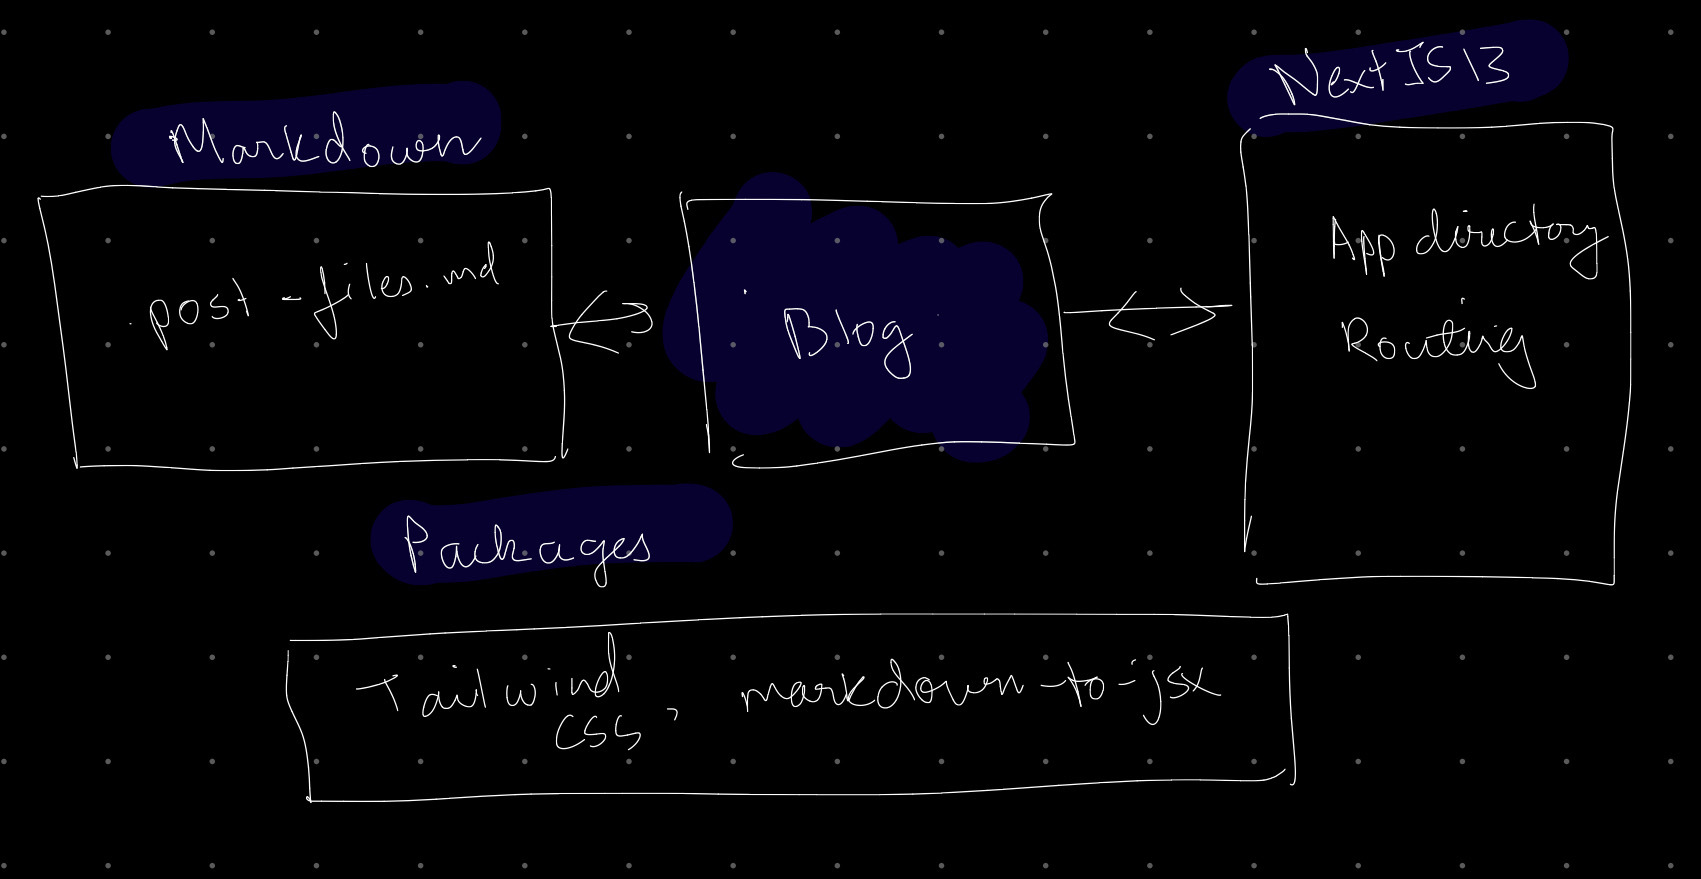 Markdown
post-files.md
Blog
NextJS13
App directory
Routing
Packages
Tailwind
CSS, markdown-to-jsx